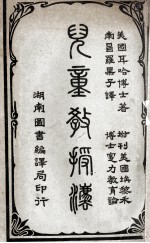 美國耳哈博士著
南昌羅黑子譯
附刊美國埃黎永
博士實力教育論
兒童教授法
湖南圖書編譯局印行